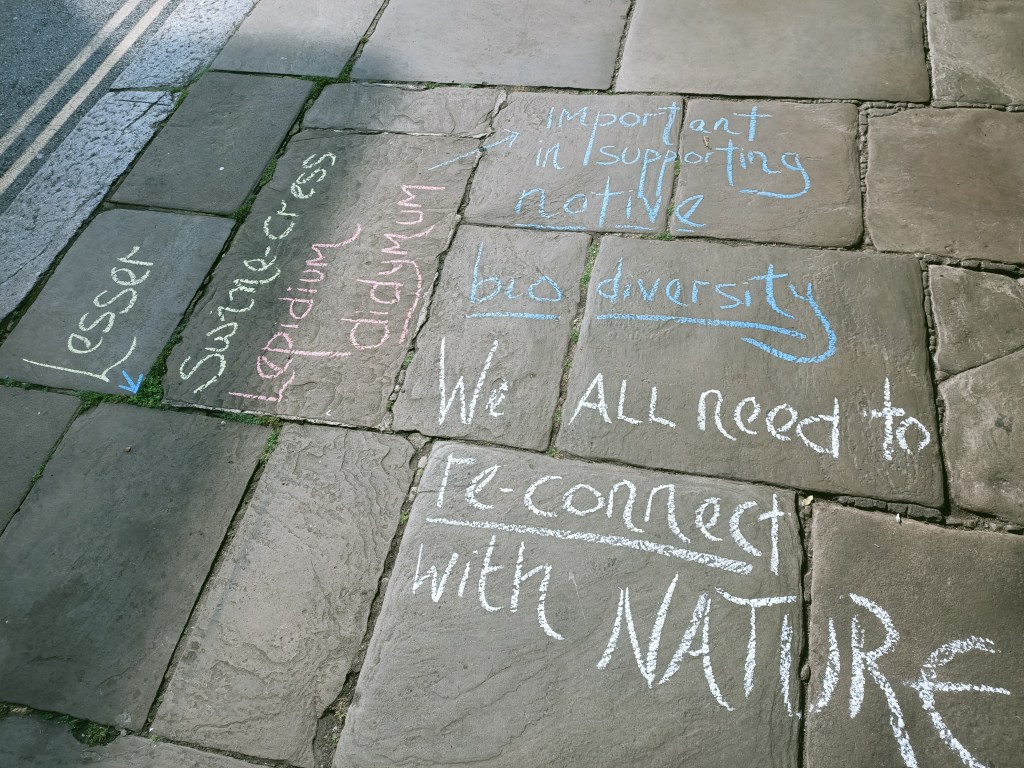 Lesser
Swine-cress
Lepidium
didymum
important
in supporting
native
bio diversity
We ALL need to
re-connect
with NATURE